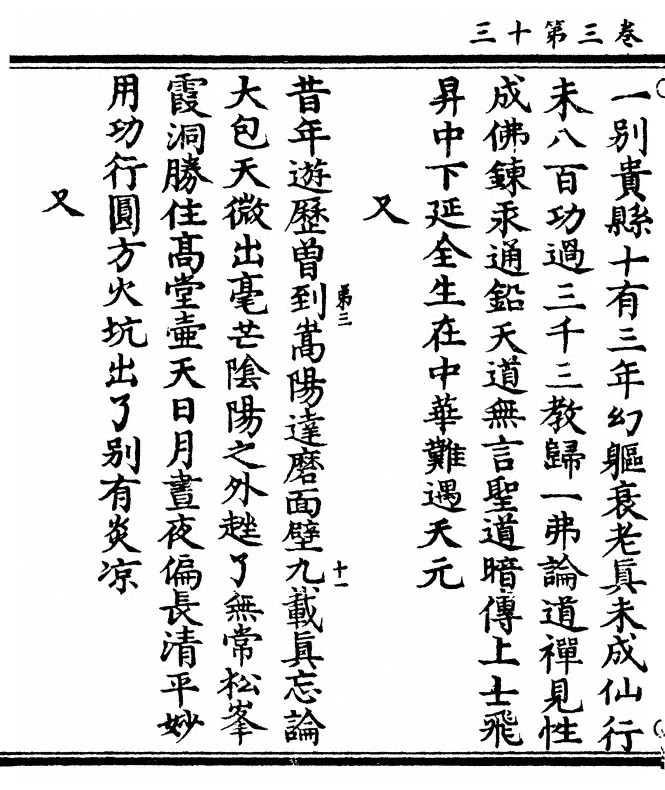 卷三第十三
一別貴縣十有三年幻軀衰老眞未成仙行
未八百功過三千三教歸一弗論道禪見性
成佛鍊汞通鉛天道無言聖道暗傳上士飛
昇中下延全生在中華難遇天元
又
昔年遊歷曾到嵩陽達磨面壁九載眞忘論
第三
十一
大包天微出毫芒陰陽之外趓了無常松峯
霞洞勝住高堂壷天日月晝夜偏長清平妙
用功行圓方火坑出了別有炎凉
又